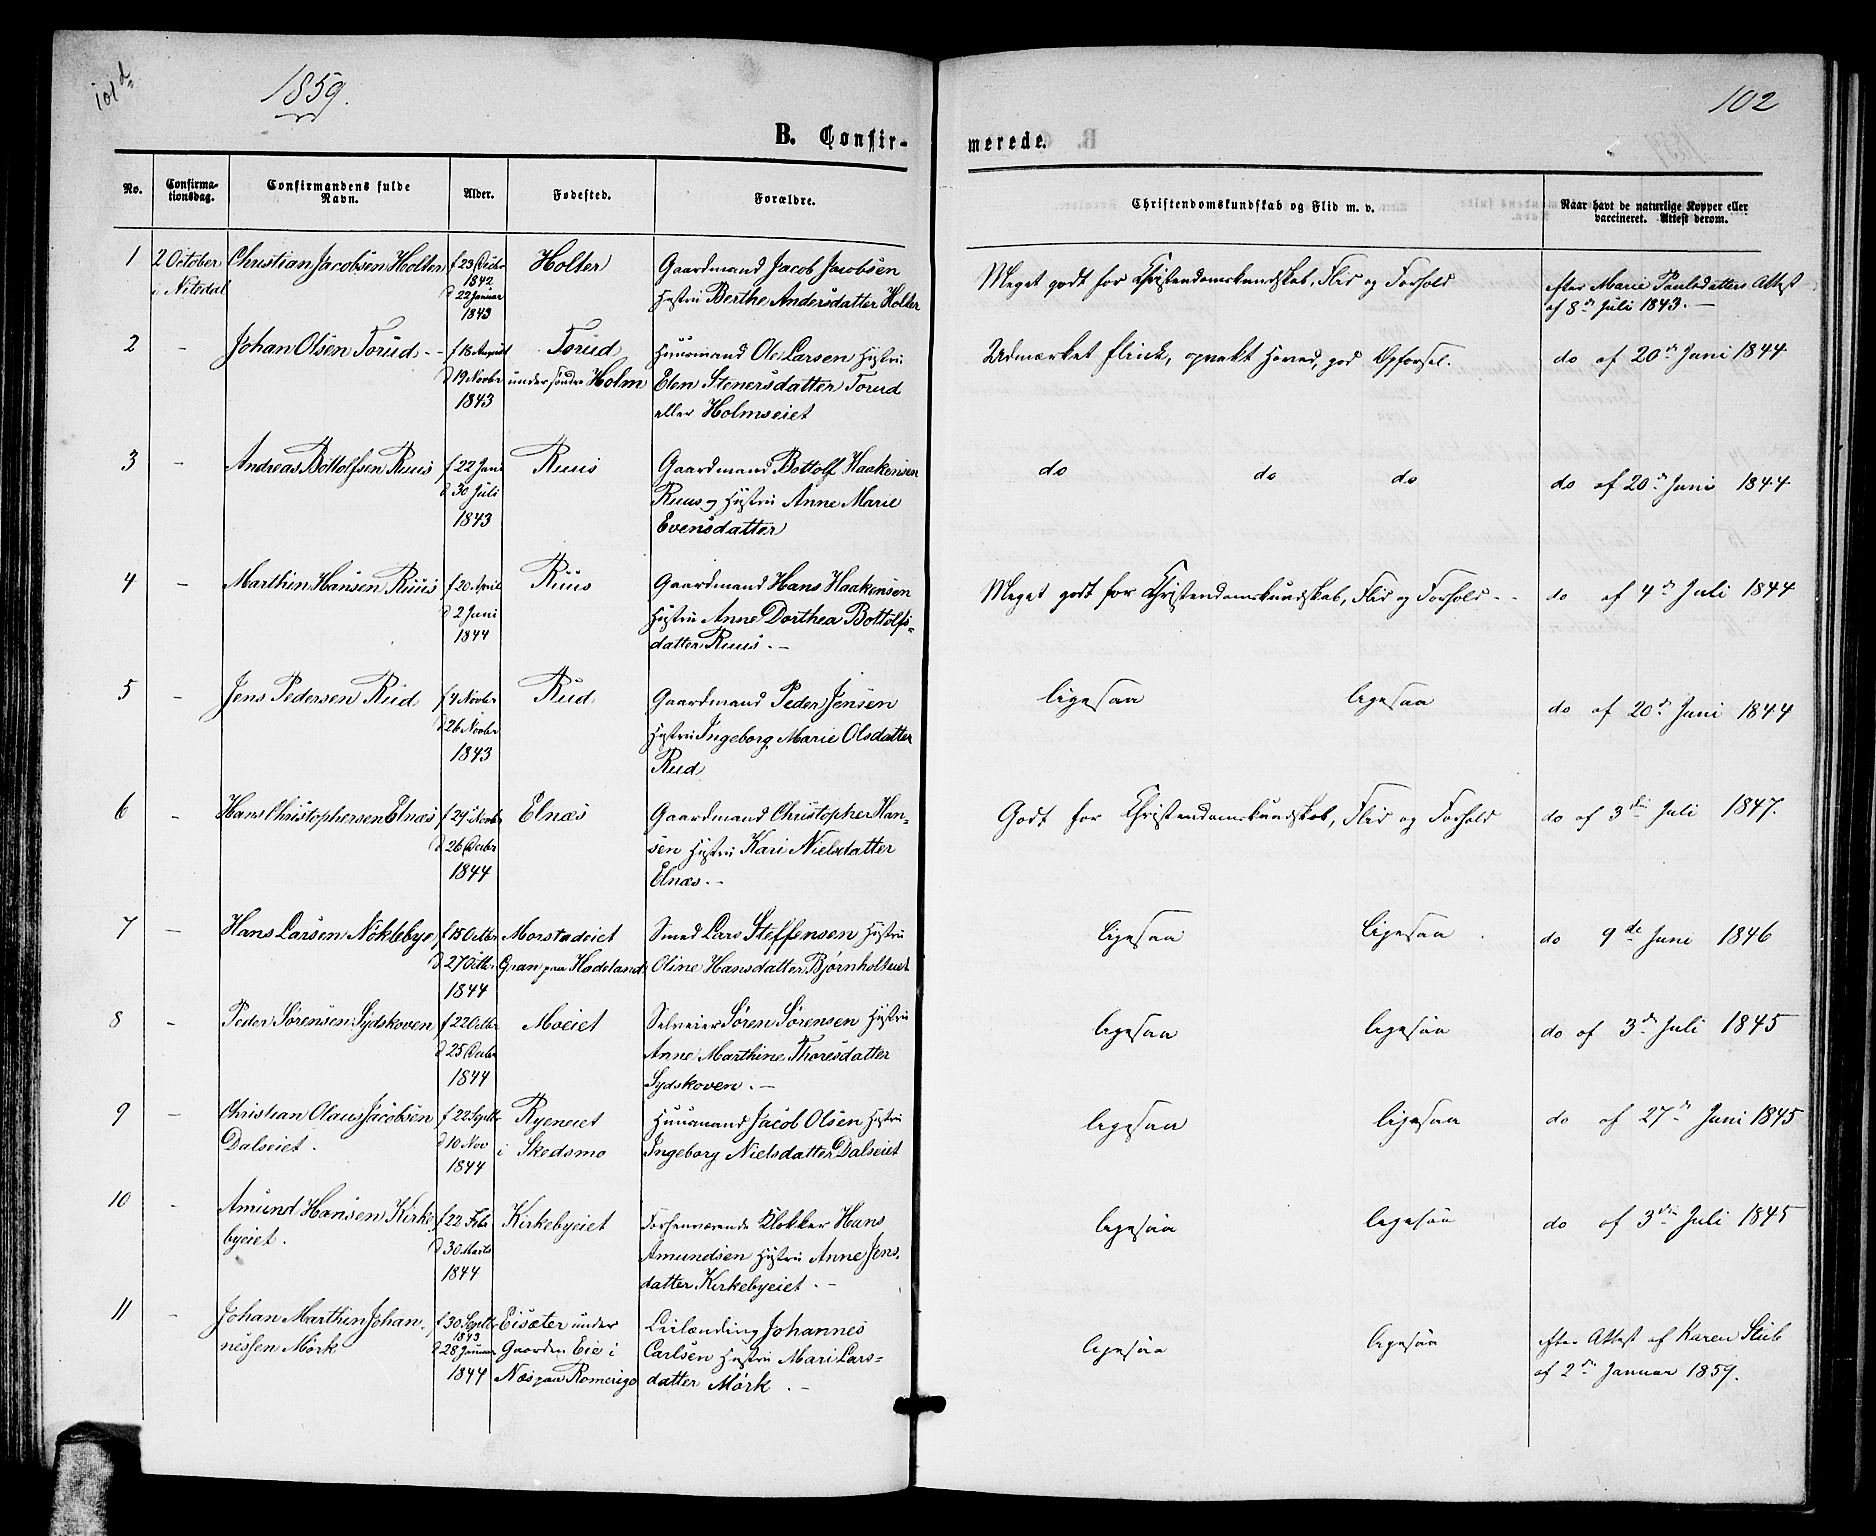 101d
1859.
102
B. Confir-
merede.
No.
Confirma-
tionsdag.
Confirmandens fulde
Navn.
Alder.
Fødested.
Forældre.
Christendomskundskab og Flid m. v.
Naar havt de naturlige Kopper eller
vaccineret. Attest derom.
1 2 October Christian Jacobsen Holter f 23 Decbr Holter Gaardmand Jacob Jacobsen Meget godt for Christendomskundskab, Flid og Forhold efter Marie Paulsdatters Attest
i Nitedal 1842 d 22 Januar 1843 Hustru Berthe Andersdatter Holter af 8de Juli 1843. —
2 - Johan Olsen Torud - - f 18 August Torud Huusmand Ole Larsen Hustru Udmærket flink, opvakt Hoved, god Opførsel. do af 20de Juni 1844
d 19 Novbr under søndre Holm Elen Stenersdatter Torud
1843 eller Holmseiet
3 - Andreas Bottolfsen Ruus f 22 Juni Ruus Gaardmand Bottolf Haakensen do do do do af 20de Juni 1844
d 30 Juli Ruus og Hustru Anne Marie
1843 Evensdatter
4 - Marthin Hansen Ruus f 20 April Ruus Gaardmand Hans Haakensen Meget godt for Christendomskundskab, Flid og Forhold - - do af 4de Juli 1844
d 2 Juni Hustru Anne Dorthea Bottolfs-
1844 datter Ruus. —
5 - Jens Pedersen Rud f 4 Novbr Rud Gaardmand Peder Jensen ligesaa ligesaa do af 20de Juni 1844
d 26 Novbr Hustru Ingeborg Marie Olsdatter
1843 Rud
6 - Hans Christophersen Elnæs f 29 Novbr Elnæs Gaardmand Christopher Han- Godt for Christendomskundskab, Flid og Forhold do af 3die Juli 1847.
d 26 Decbr sen Hustru Kari Nielsdatter
1844 Elnæs. —
7 - Hans Larsen Nöklebye f 15 Octbr Morstadeiet Smed Lars Steffensen Hustru ligesaa ligesaa do 9de Juni 1846
d 27 Octbr Gran paa Hadeland Oline Hansdatter Bjørnholteiet
1844
8 - Peder Sørensen Sydskoven f 22 Octbr Moeiet Selveier Søren Sørensen Hustru ligesaa ligesaa do af 3die Juli 1845
d 25 Decbr Anne Marthine Thoresdatter
1844 Sydskoven. —
9 - Christian Olaus Jacobsen f 22 Septbr Ryeneiet Huusmand Jacob Olsen Hustru ligesaa ligesaa do af 27de Juni 1845
Dalseiet. d 10 Nov i Skedsmo Ingeborg Nielsdatter Dalseiet
1844
10 - Amund Hansen Kirke f 22 Feb Kirkebyeiet Forhenværende Klokker Hans ligesaa ligesaa do af 3die Juli 1845
byeiet. d 30 Marts Amundsen Hustru Anne Jens-
1844 datter Kirkebyeiet. —
11 - Johan Marthin Johan- f 30 Septbr Eisæter under Johannes ligesaa ligesaa efter Attest af Karen Stub
nessen Mörk 1843 d 28 Januar Gaarden Eie i Carlsen Hustru Mari Lars- af 2den Januar 1859.
1844 Næs paa Romerige datter Mörk. —